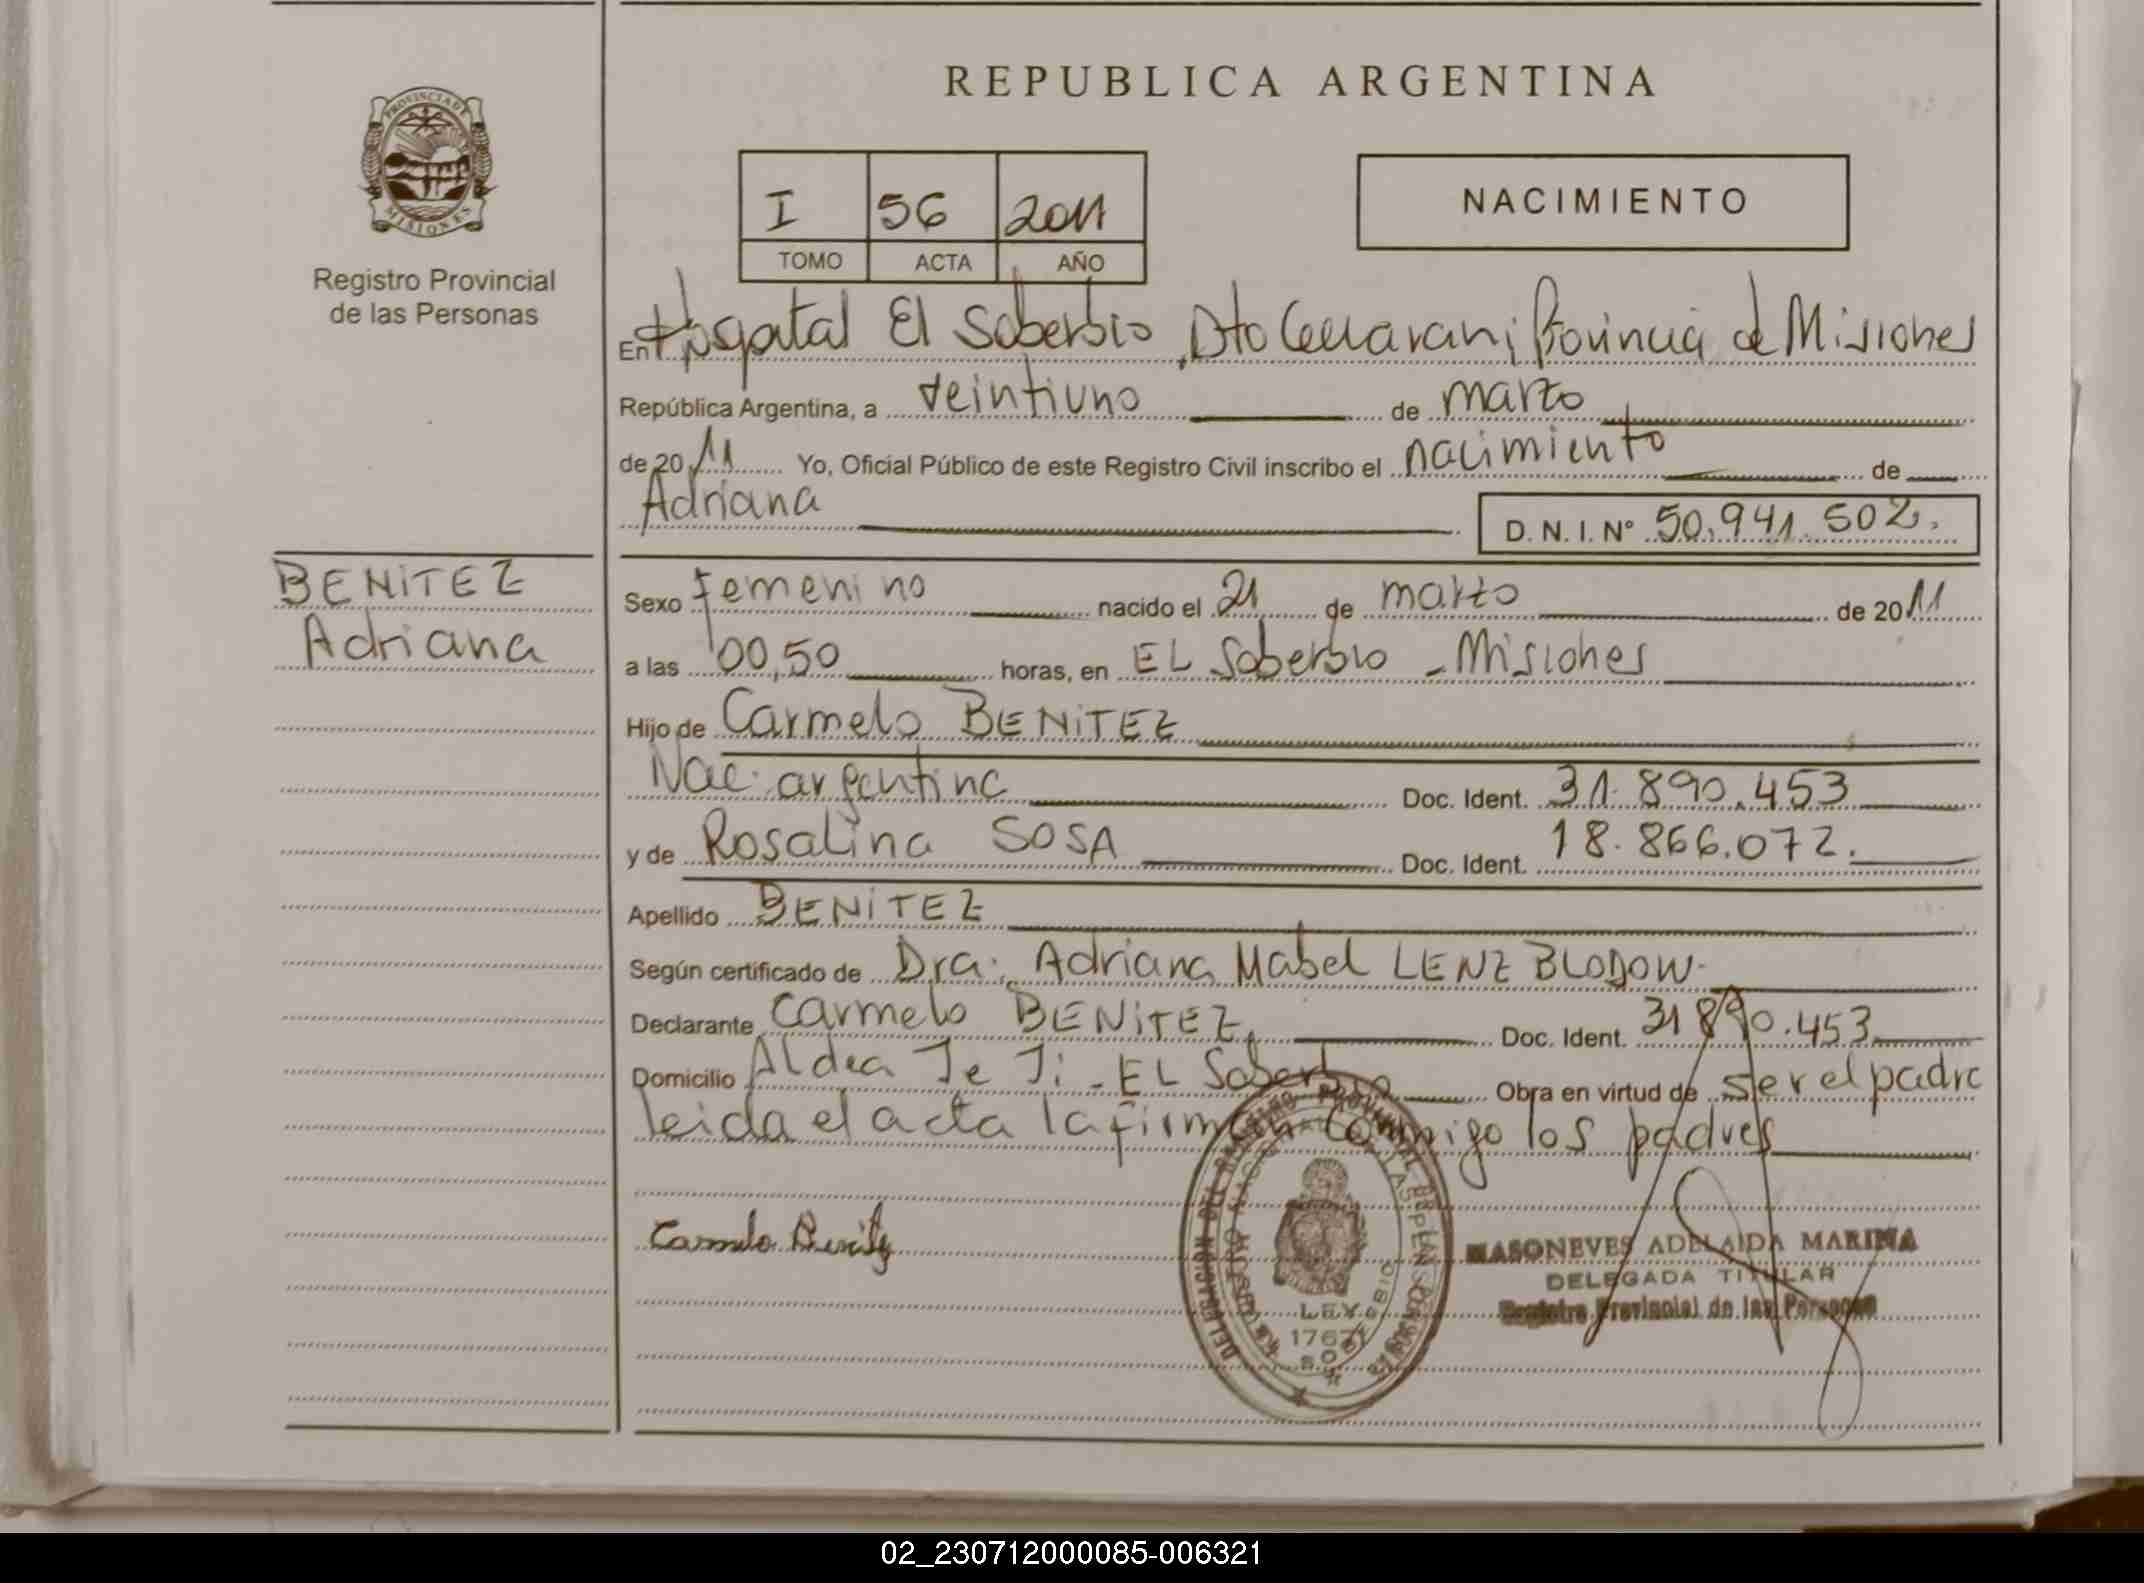 REPUBLICA ARGENTINA
PROVINCIA DE
MISIONES
Registro Provincial
de las Personas
I 56 2011
TOMO ACTA AÑO
NACIMIENTO
En Hospital El Soberbio, Dto Guarani, Provincia de Misiones
República Argentina, a veintiuno de marzo
de 2011 Yo, Oficial Público de este Registro Civil inscribo el nacimiento de
Adriana D.N.I. Nº 50.941.502.
BENITEZ
Adriana
Sexo femenino nacido el 21 de marzo de 2011
a las 00,50 horas, en EL Soberbio - Misiones
Hijo de Carmelo BENITEZ
Nac. argentina Doc. Ident. 31.890.453
y de Rosalina SOSA Doc. Ident. 18.866.072.
Apellido BENITEZ
Según certificado de Dra. Adriana Mabel LENZ BLODOW.
Declarante Carmelo BENITEZ, Doc. Ident. 31890.453
Domicilio Aldea Je Ji - EL Soberbio Obra en virtud de ser el padre
leida el acta la firman conmigo los padres
Carmelo Benitez
LEY
1767
MASONEVES ADELAIDA MARINA
DELEGADA TITULAR
Registro Provincial de las Personas
02_230712000085-006321